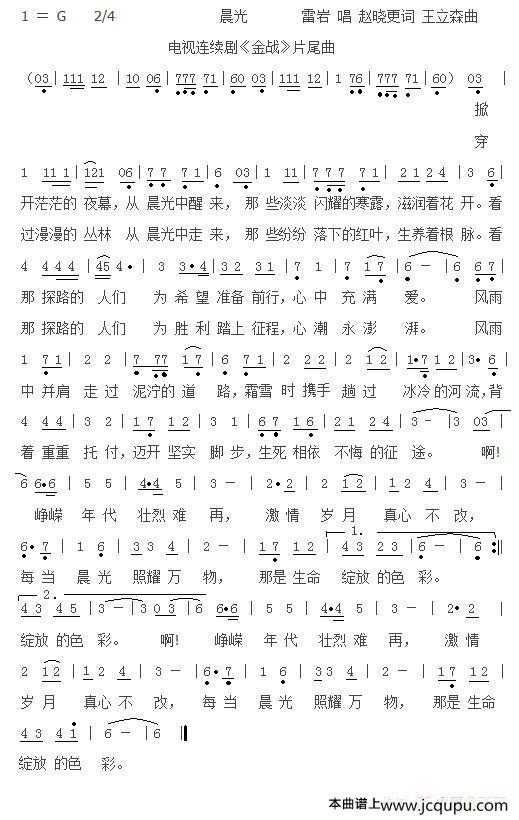 1 = G 2/4 晨光 雷岩 唱 赵晓更词 王立森曲
电视连续剧《金战》片尾曲
(03 | 111 12 | 10 06 | 777 71 | 61 | 1 | 1 76 | 777 71 | 60) 03 |
掀
穿
1 11 1 | 121 06 | 7 7 7 1 | 6 03 | 1 111 | 777 7 | 1 21 4 | 3 6 |
开茫茫的 夜幕，从 晨光中醒 来，那 些淡淡 闪耀的寒露，滋润着花 开。看
过漫漫的 丛林 从 晨光中走 来，那 些纷纷 落下的红叶，生养着根 脉。看
4 444 | 45 4• | 3 3•4 | 32 31 | 7 1 | 7 17 | 6 － | 6 67 |
那 探路的 人们 为 希 望 准备 前行，心 中 充 满 爱。 风雨
那 探路的 人们 为 胜 利 踏上 征程，心 潮 永 澎 湃。 风雨
1 71 | 2 2 | 7 77 17 | 6 67 | 2 22 | 2 12 | 1•7 12 | 3• 6 |
中 并肩 走 过 泥泞的 道 路，霜雪 时 携手 趟 过 冰冷 的河 流，背
4 44 | 3 2 | 17 12 | 3 2 | 67 16 | 21 24 | 3 － | 3 03 |
着 重重 托 付，迈开 坚实 脚 步，生死 相依 不悔 的征 途。 啊!
6 6•6 | 5 5 | 4•4 5 | 3 － | 2• 2 | 2 12 | 1 2 4 | 3 － |
峥嵘 年 代 壮烈 难 再， 激 情 岁 月 真心 不 改，
6• 7 | 1 6 | 33 4 | 2 － | 17 12 | 1. 43 23 | 6 － | 6 :|
每 当 晨 光 照耀 万 物， 那是 生命 绽放 的色 彩。
2. 43 45 | 3 － | 3 03 | 6 6•6 | 5 5 | 4•4 5 | 3 － | 2• 2 |
绽放 的色 彩。 啊! 峥嵘 年 代 壮烈 难 再， 激 情
2 12 | 1 2 4 | 3 － | 6• 7 | 1 6 | 33 4 | 2 － | 17 12 |
岁 月 真心 不 改， 每 当 晨 光 照耀 万 物， 那是 生命
43 41 | 6 － | 6 ‖
绽放 的色 彩。
本曲谱上www.jcqupu.com